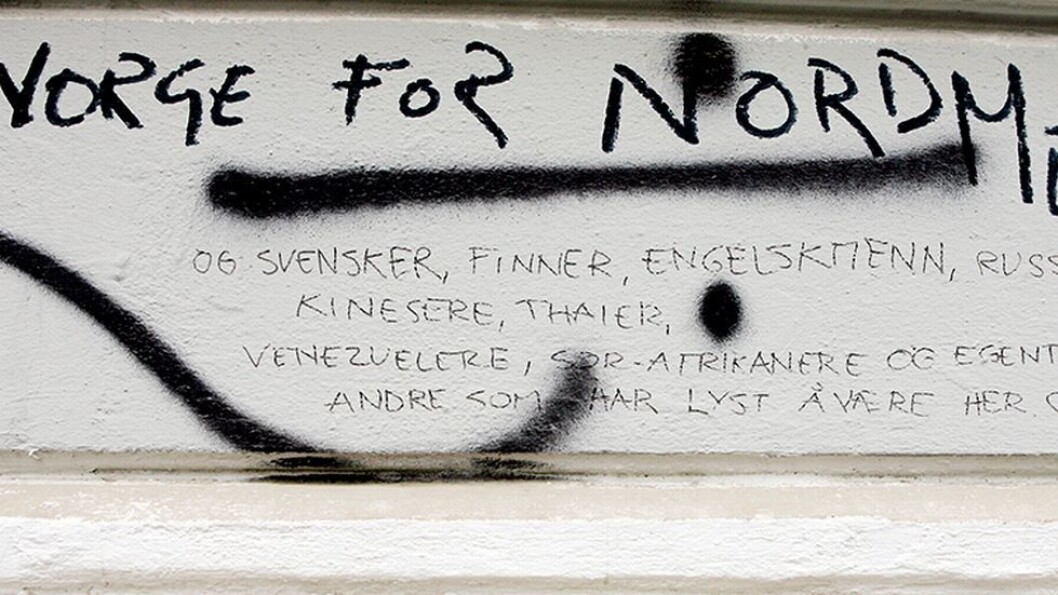 NORGE FOR NORDM
OG SVENSKER, FINNER, ENGELSKMENN, RUSS
KINESERE, THAIER,
VENEZUELERE, SØR-AFRIKANERE OG EGENT
ANDRE SOM HAR LYST Å VÆRE HER